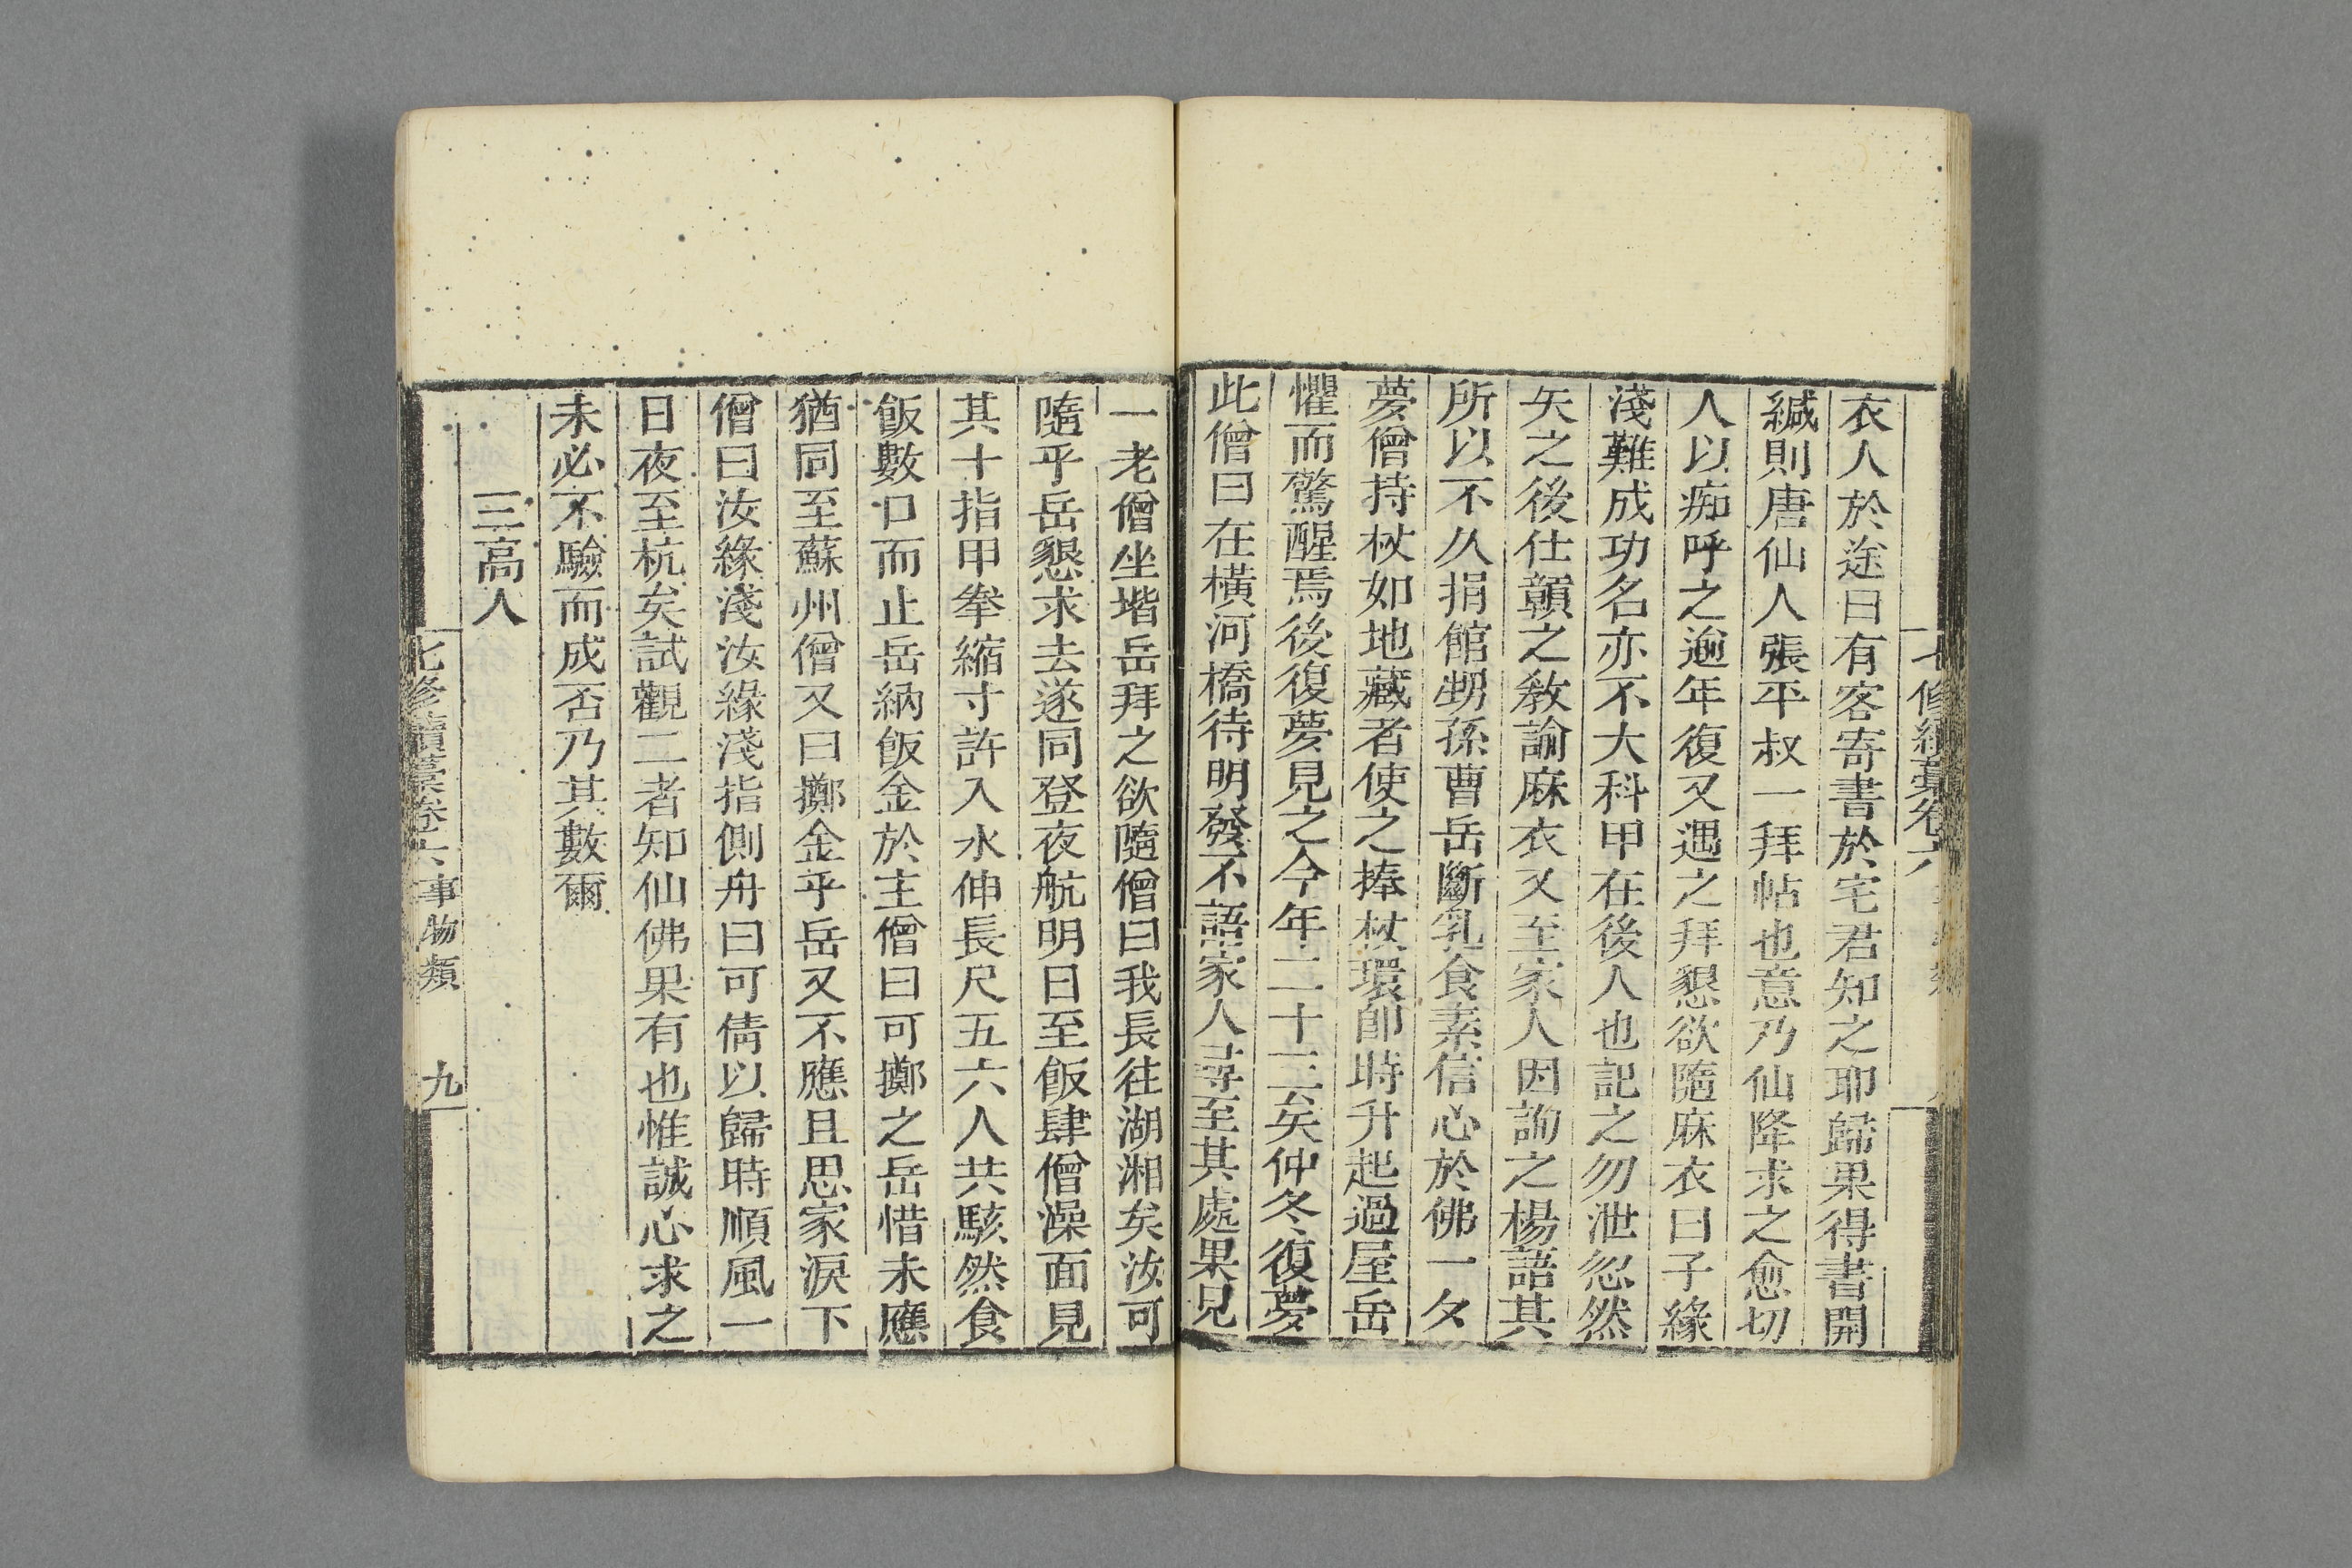 七修續藁卷六
衣人於途曰有客寄書於宅君知之耶歸果得書開
緘則唐仙人張平叔一拜帖也意乃仙降求之愈切
人以痴呼之逾年復又遇之拜懇欲隨麻衣曰子緣
淺難成功名亦不大科甲在後人也記之勿泄忽然
矢之後仕贛之教諭麻衣又至家人因詢之楊語其
所以不久捐館甥孫曹岳斷乳食素信心於佛一夕
夢僧持杖如地藏者使之捧杖環卽時升起過屋岳
懼而驚醒焉後復夢見之今年二十三矣仲冬復夢
此僧曰在橫河橋待明發不語家人尋至其處果見
一老僧坐堦岳拜之欲隨僧曰我長往湖湘矣汝可
隨乎岳懇求去遂同登夜航明日至飯肆僧澡面見
其十指甲拳縮寸許入水伸長尺五六人共駭然食
飯數口而止岳納飯金於主僧曰可擲之岳惜未應
猶同至蘇州僧又曰擲金乎岳又不應且思家淚下
僧曰汝緣淺汝緣淺指側舟曰可倩以歸時順風一
日夜至杭矣試觀二者知仙佛果有也惟誠心求之
未必不驗而成否乃其數爾
三高人
七修續藁卷六 事物類 九